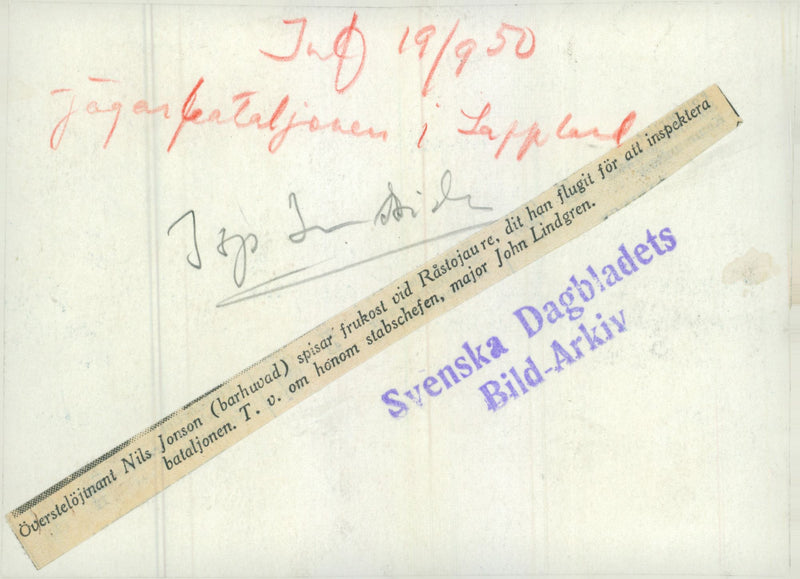 19/9 50
jägarbataljonen i Lappland
Överstelöjtnant Nils Jonson (barhuvad) spisar frukost vid Råstojaure, dit han flugit för att inspektera
bataljonen. T. v. om honom stabschefen, major John Lindgren.
Svenska Dagbladets
Bild-Arkiv